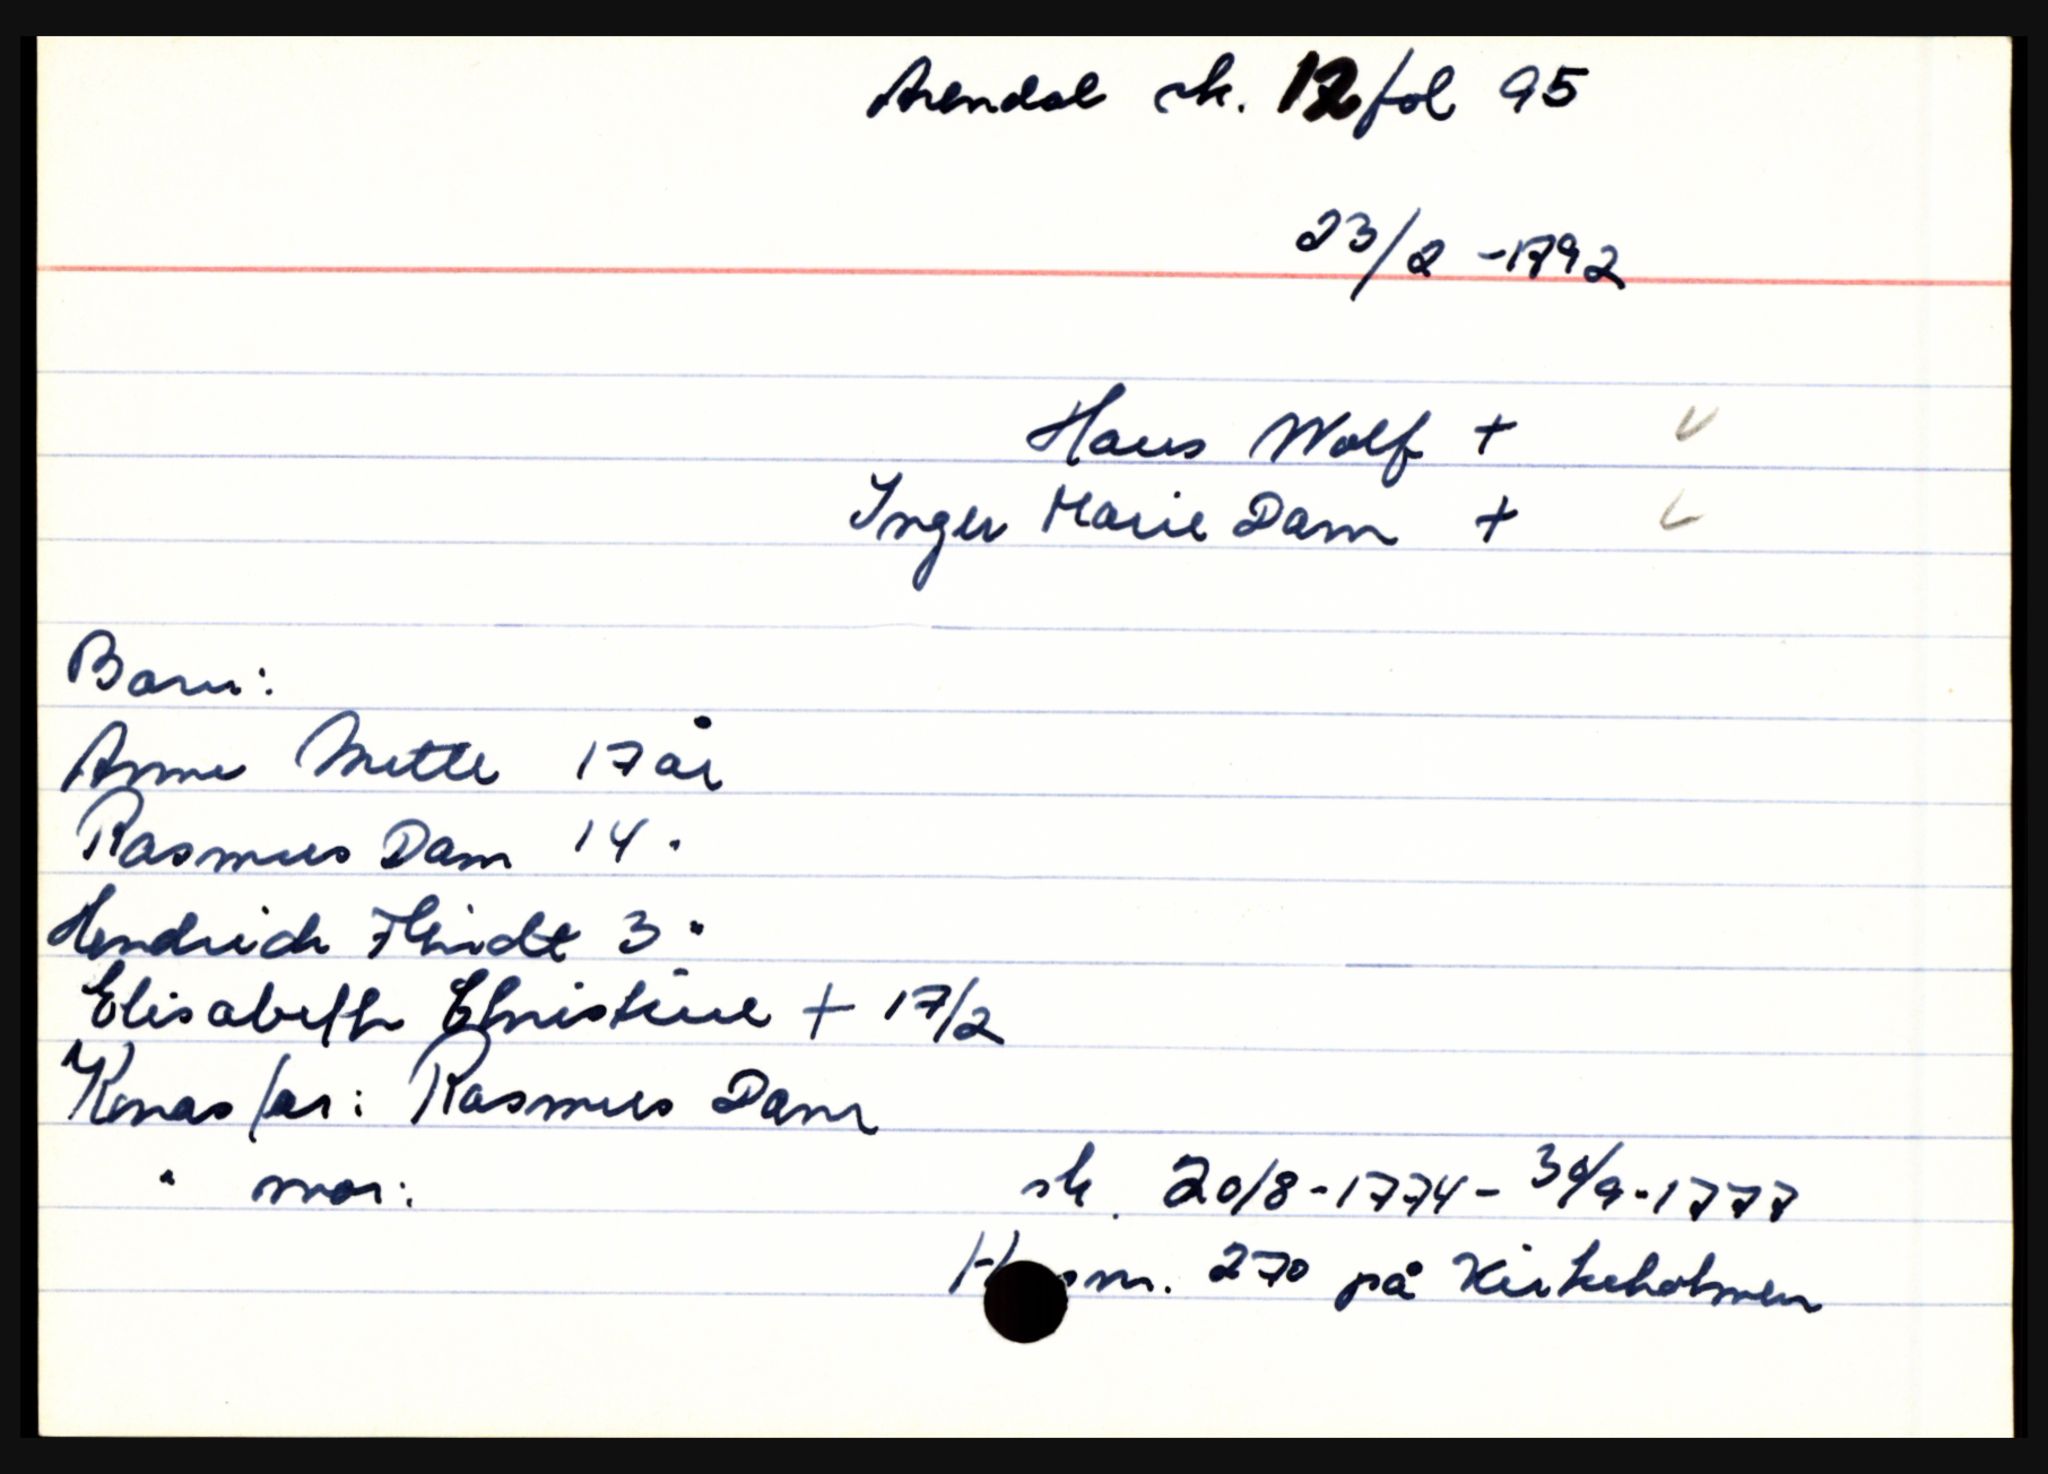 Arendal sk. 12 fol 95
23/2 - 1792
Hans Wolf +
Inger Marie Dam +
Barn:
Anne Mette 17 år
Rasmus Dam 14 "
Hendrich 3 "
Elisabeth Christine + 17/2
Konas far: Rasmus Dam
" mor:
sk. 20/8 - 1774 - 30/9 - 1777
270 på Kirkeholmen